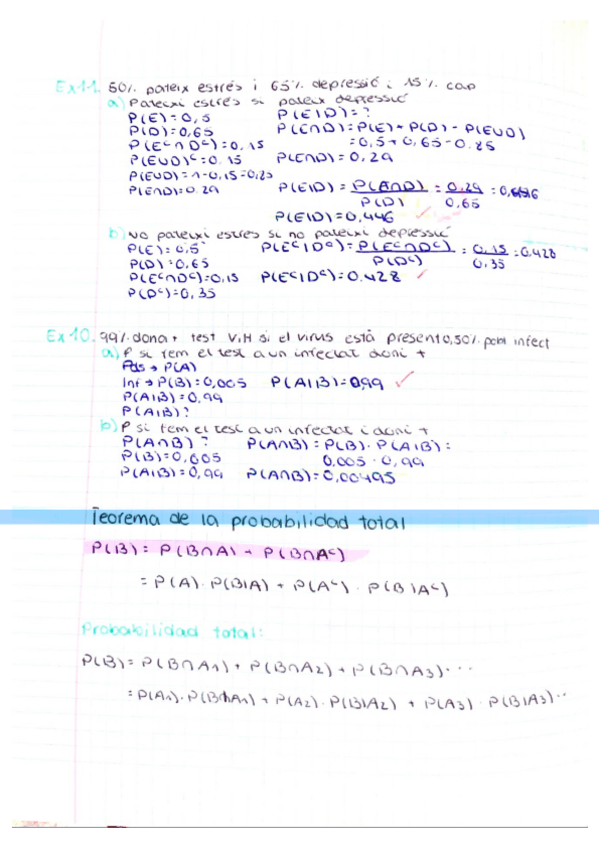 Ex 11. 50%. pateix estrès i 65% depressió i 15% cap
a) Pateixi estrés si pateix depressió
P(E) = 0,5 P(E|D) = ?
P(D) = 0,65 P(E∩D) = P(E) + P(D) - P(E∪D)
P(Eᶜ∩Dᶜ) = 0,15 = 0,5 + 0,65 - 0.85
P(E∪D)ᶜ = 0.15 P(E∩D) = 0,29
P(E∪D) = 1-0,15 = 0,85
P(E∩D) = 0.29 P(E|D) = P(A∩D) / P(D) = 0.29 / 0,65 =
P(E|D) = 0,446 ✓
b) No pateixi estres si no pateixi depressió
P(E) = 0.5 P(Eᶜ|Dᶜ) = P(Eᶜ∩Dᶜ) / P(Dᶜ) = 0,15 / 0,35 = 0.428
P(D) = 0,65
P(Eᶜ∩Dᶜ) = 0,15 P(Eᶜ|Dᶜ) = 0.428 ✓
P(Dᶜ) = 0,35
Ex 10. 99% dona + test VIH si el virus està present 0,50% pobl infect
a) P si fem el test a un infectat doni +
→ P(A)
Inf → P(B) = 0,005 P(A|B) = 0,99 ✓
P(A|B) = 0,99
P(A|B)?
b) P si fem el test a un infectat i doni +
P(A∩B) ? P(A∩B) = P(B) · P(A|B) =
P(B) = 0,005 0.005 · 0,99
P(A|B) = 0,99 P(A∩B) = 0,00495
Teorema de la probabilidad total
P(B) = P(B∩A) + P(B∩Aᶜ)
= P(A) · P(B|A) + P(Aᶜ) · P(B|Aᶜ)
Probabilidad total:
P(B) = P(B∩A1) + P(B∩A2) + P(B∩A3) ...
= P(A1) · P(B|A1) + P(A2) · P(B|A2) + P(A3) · P(B|A3) ..